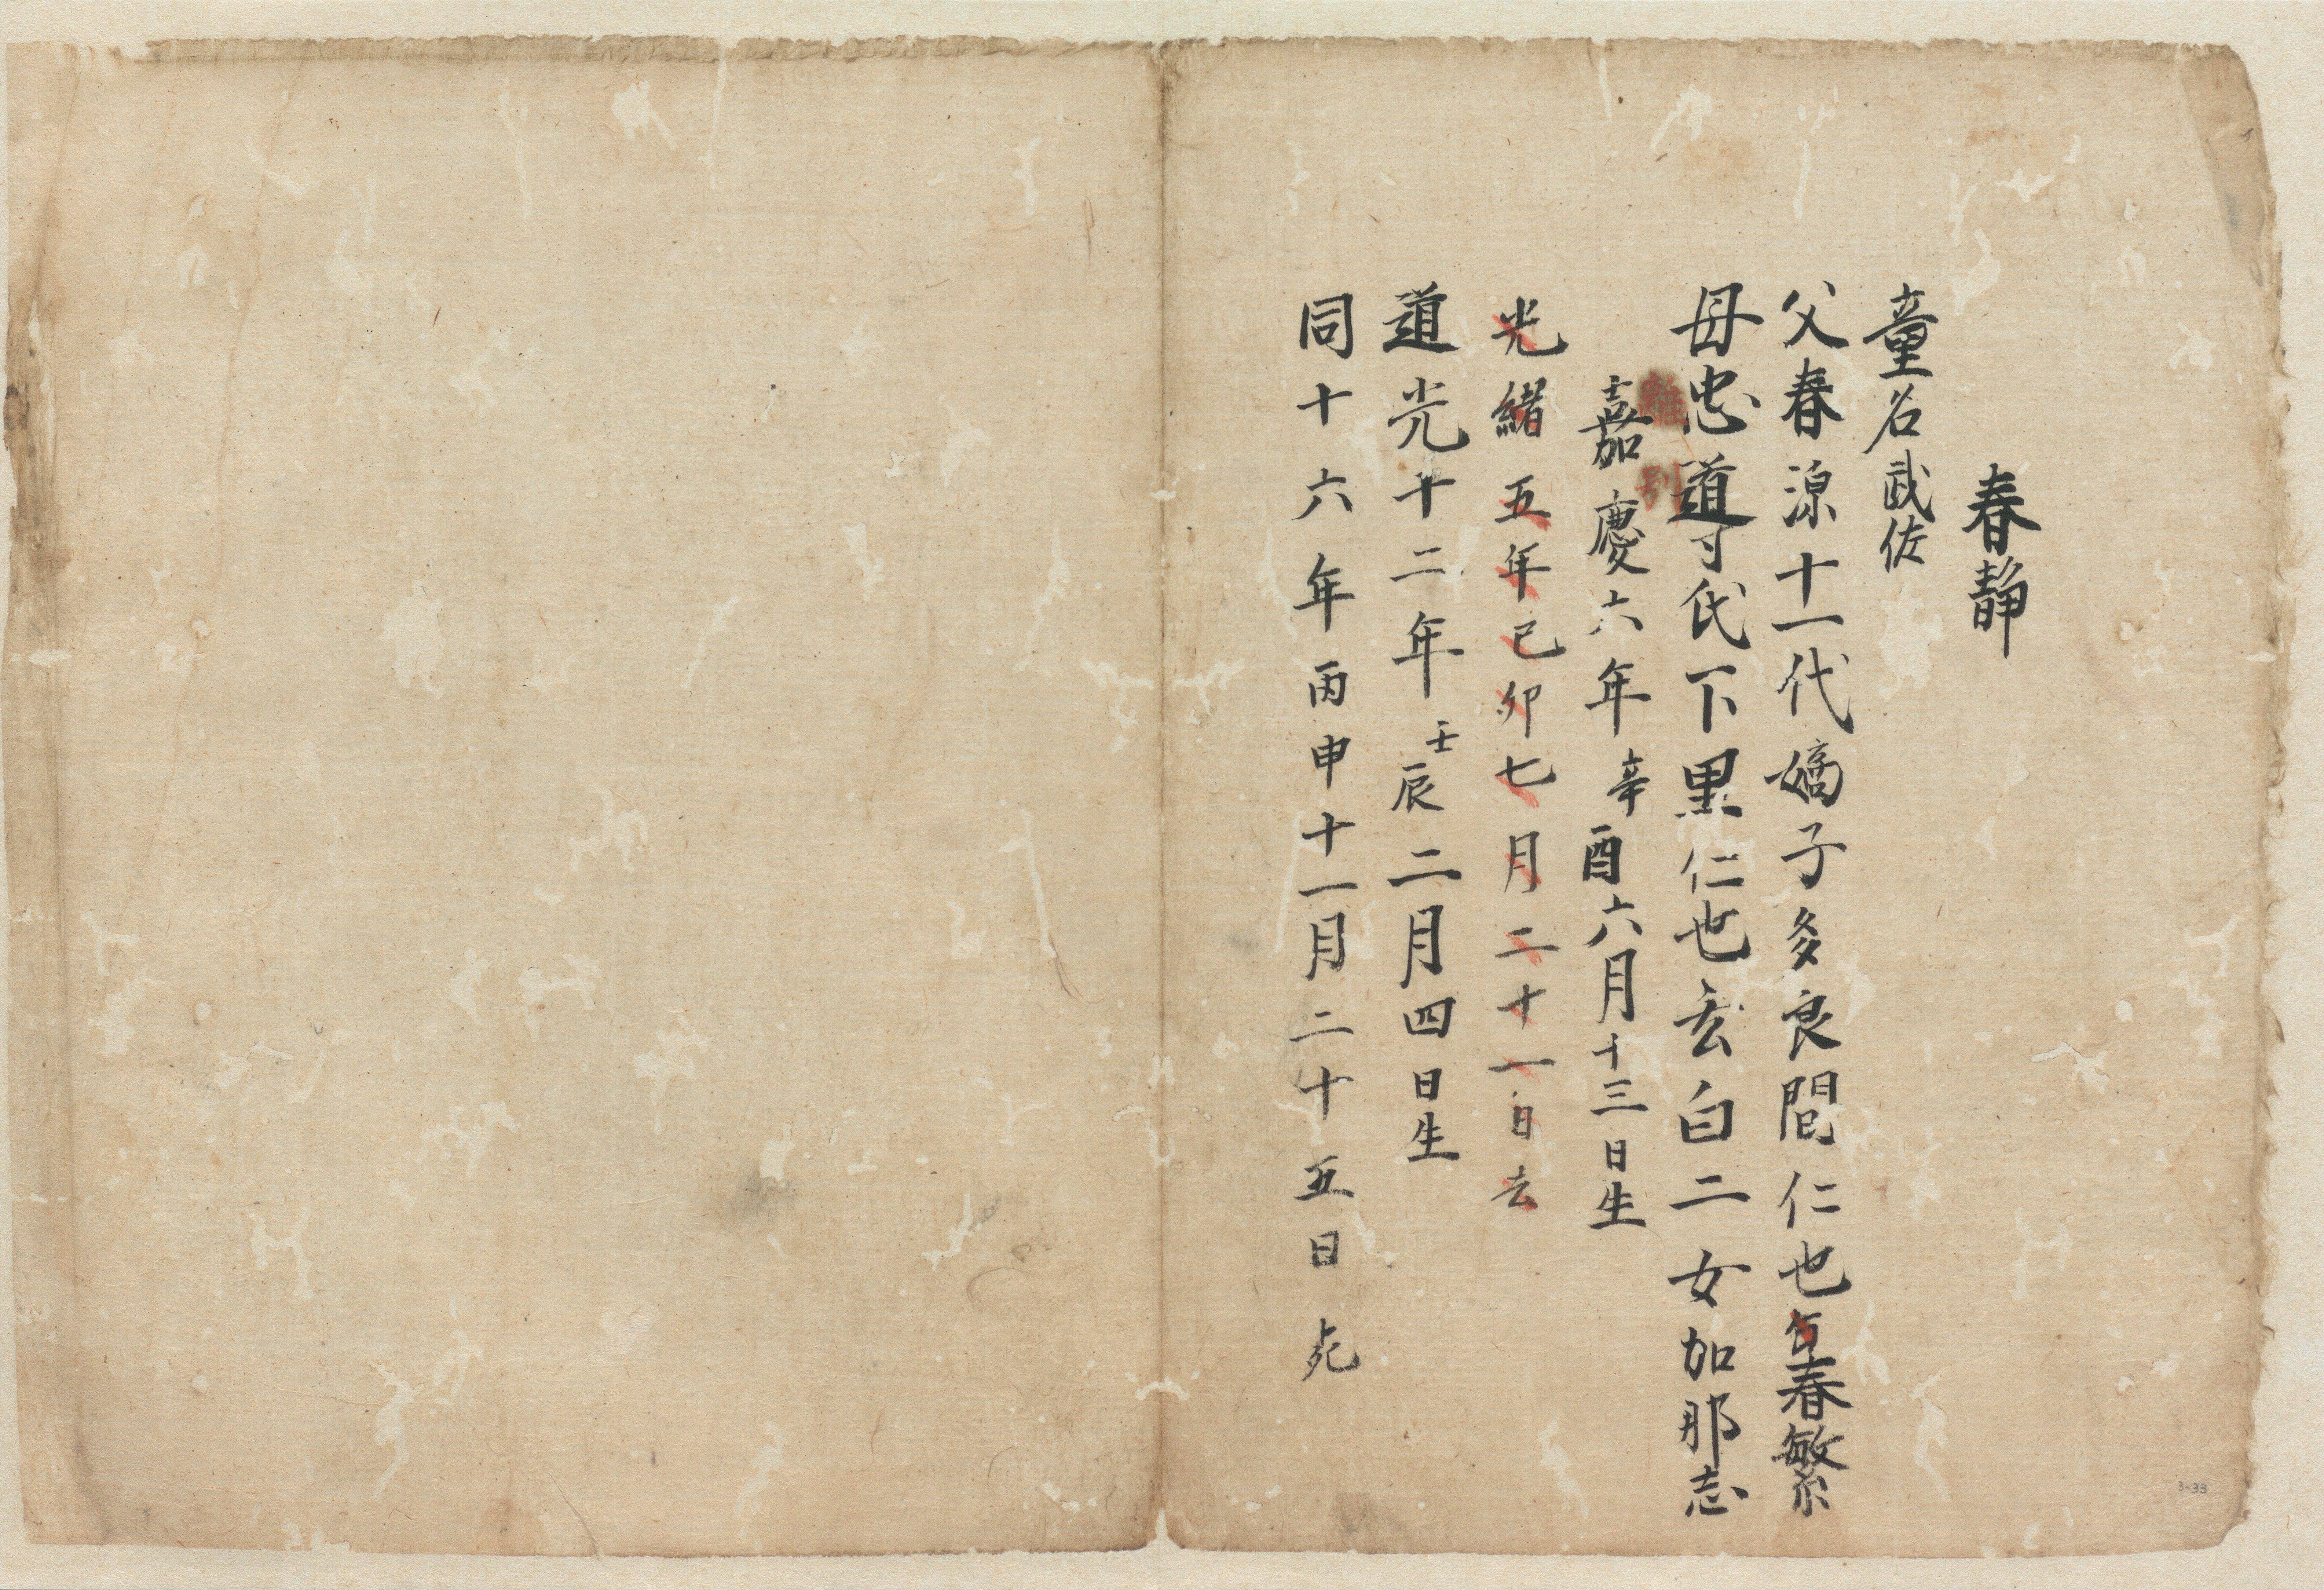 春静
童名武佐
父春源十一代嫡子多良間仁也春繁
母忠道氏下里仁也玄白二女加那志
離別
嘉慶六年辛酉六月十三日生
光緒五年己卯七月二十一日去
道光十二年壬辰二月四日生
同十六年丙申十一月二十五日死
3-33